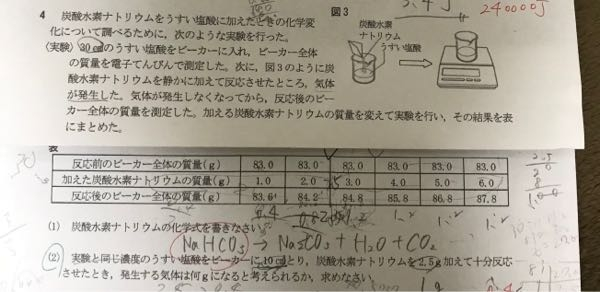 3.4J
240000J
4 炭酸水素ナトリウムをうすい塩酸に加えたときの化学変
化について調べるために、次のような実験を行った。
図3
炭酸水素
ナトリウム
うすい塩酸
〈実験〉30㎤のうすい塩酸をビーカーに入れ、ビーカー全体
の質量を電子てんびんで測定した。次に、図3のように炭
酸水素ナトリウムを静かに加えて反応させたところ、気体
が発生した。気体が発生しなくなってから、反応後のビー
カー全体の質量を測定した。加える炭酸水素ナトリウムの質量を変えて実験を行い、その結果を表
にまとめた。
表
反応前のビーカー全体の質量(g) 83.0 83.0 83.0 83.0 83.0 83.0
加えた炭酸水素ナトリウムの質量(g) 1.0 2.0 3.0 4.0 5.0 6.0
反応後のビーカー全体の質量(g) 83.6 84.2 84.8 85.8 86.8 87.8
0.4 0.8 1.2 1.2 1.2
(1) 炭酸水素ナトリウムの化学式を書きなさい。
NaHCO3 → Na2CO3 + H2O + CO2
(2) 実験と同じ濃度のうすい塩酸をビーカーに10㎤とり、炭酸水素ナトリウムを2.5g加えて十分反応
させたとき、発生する気体は何gになると考えられるか、求めなさい。